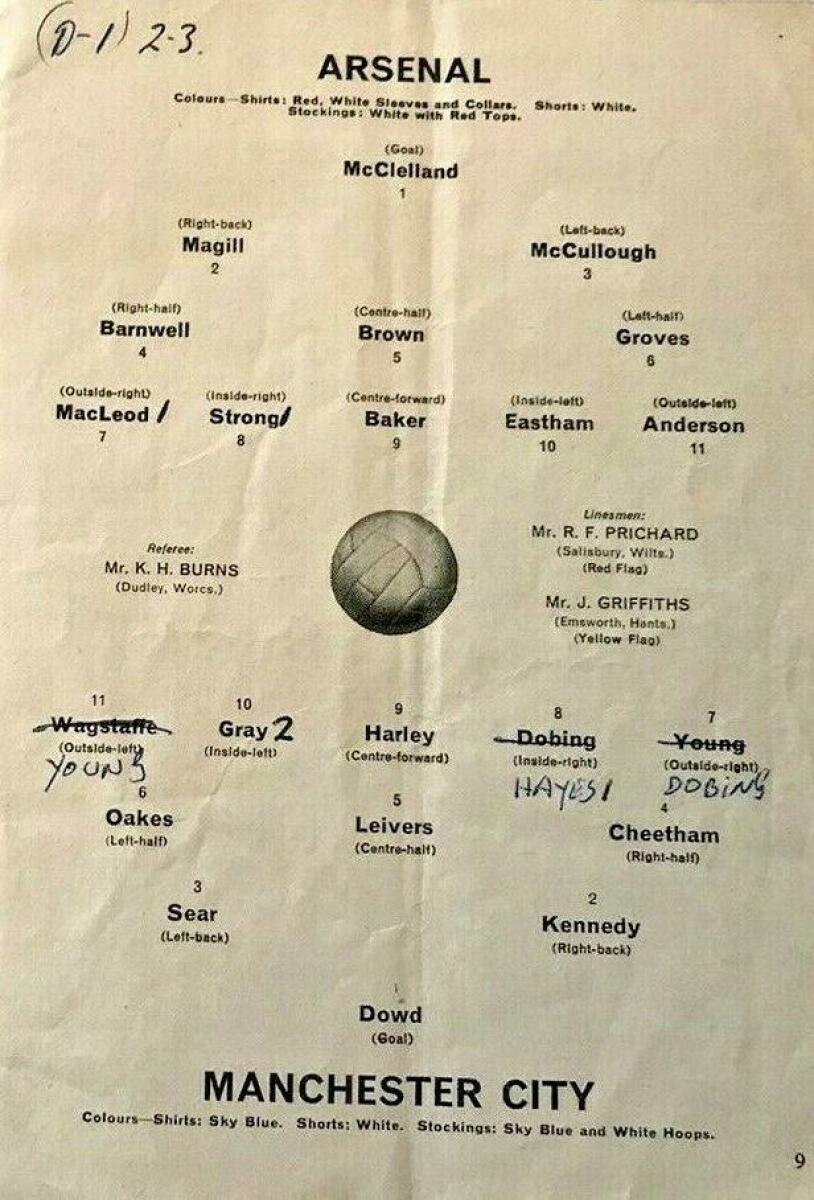 (D-1) 2-3.
ARSENAL
Colours—Shirts: Red, White Sleeves and Collars. Shorts: White.
Stockings: White with Red Tops.
(Goal)
McClelland
1
(Right-back) (Left-back)
Magill McCullough
2 3
(Right-half) (Centre-half) (Left-half)
Barnwell Brown Groves
4 5 6
(Outside-right) (Inside-right) (Centre-forward) (Inside-left) (Outside-left)
MacLeod / Strong / Baker Eastham Anderson
7 8 9 10 11
Referee:
Mr. K. H. BURNS
(Dudley, Worcs.)
Linesmen:
Mr. R. F. PRICHARD
(Salisbury, Wilts.)
(Red Flag)
Mr. J. GRIFFITHS
(Emsworth, Hants.)
(Yellow Flag)
11 10 9 8 7
Wagstaffe Gray 2 Harley Dobing Young
(Outside-left) (Inside-left) (Centre-forward) (Inside-right) (Outside-right)
YOUNG HAYES 1 DOBING
6 5 4
Oakes Leivers Cheetham
(Left-half) (Centre-half) (Right-half)
3 2
Sear Kennedy
(Left-back) (Right-back)
1
Dowd
(Goal)
MANCHESTER CITY
Colours—Shirts: Sky Blue. Shorts: White. Stockings: Sky Blue and White Hoops.
9